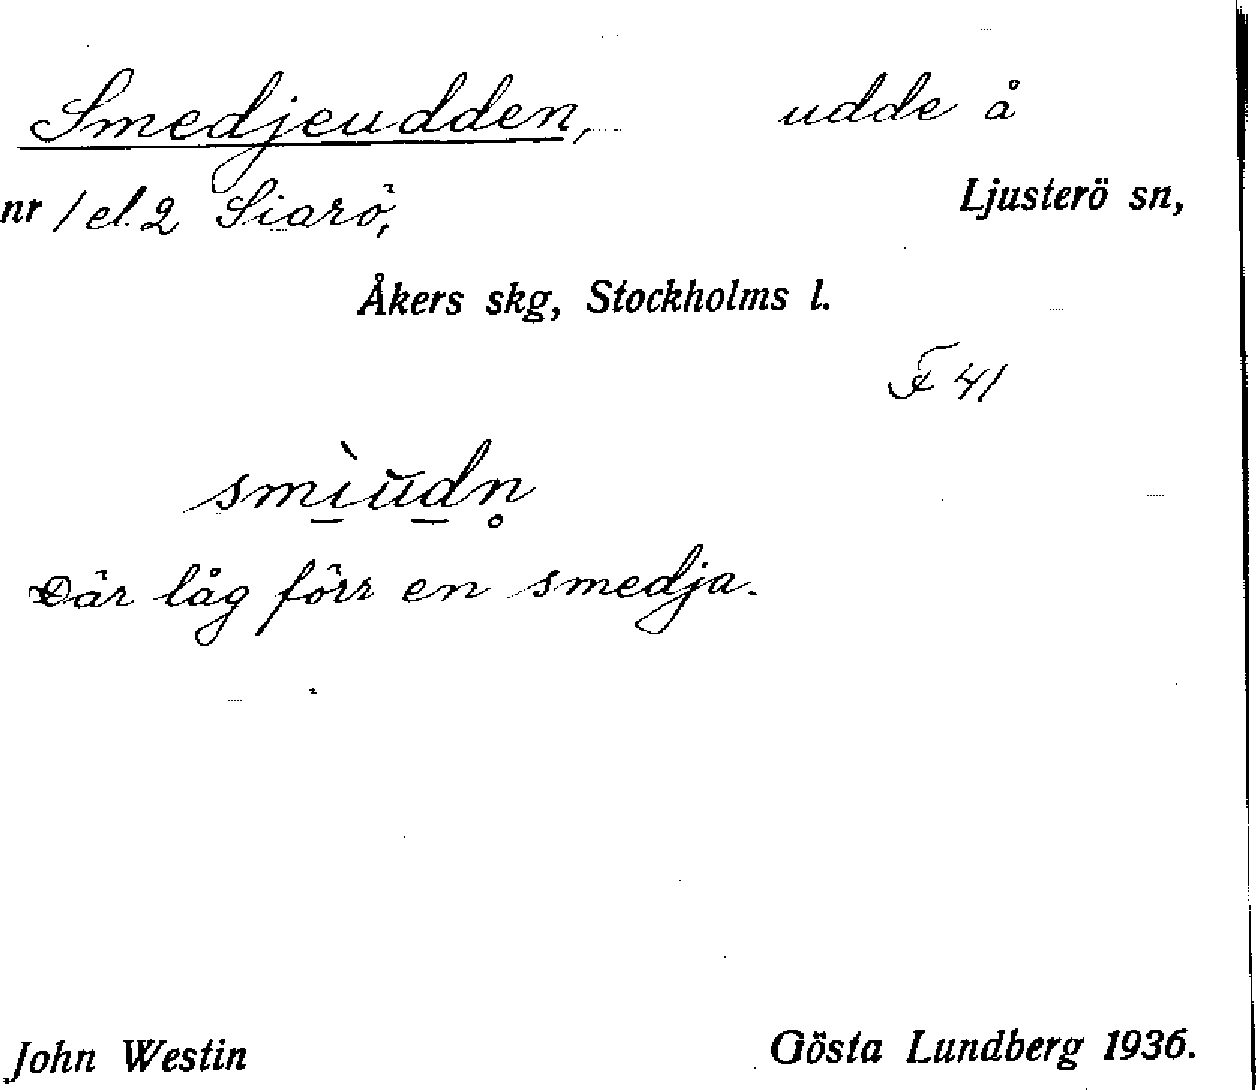 Smedjeudden, udde å
nr 1 el. 2 Siarö, Ljusterö sn,
Åkers skg, Stockholms l.
F 41
smìŭdn̥
Där låg förr en smedja.
John Westin Gösta Lundberg 1936.